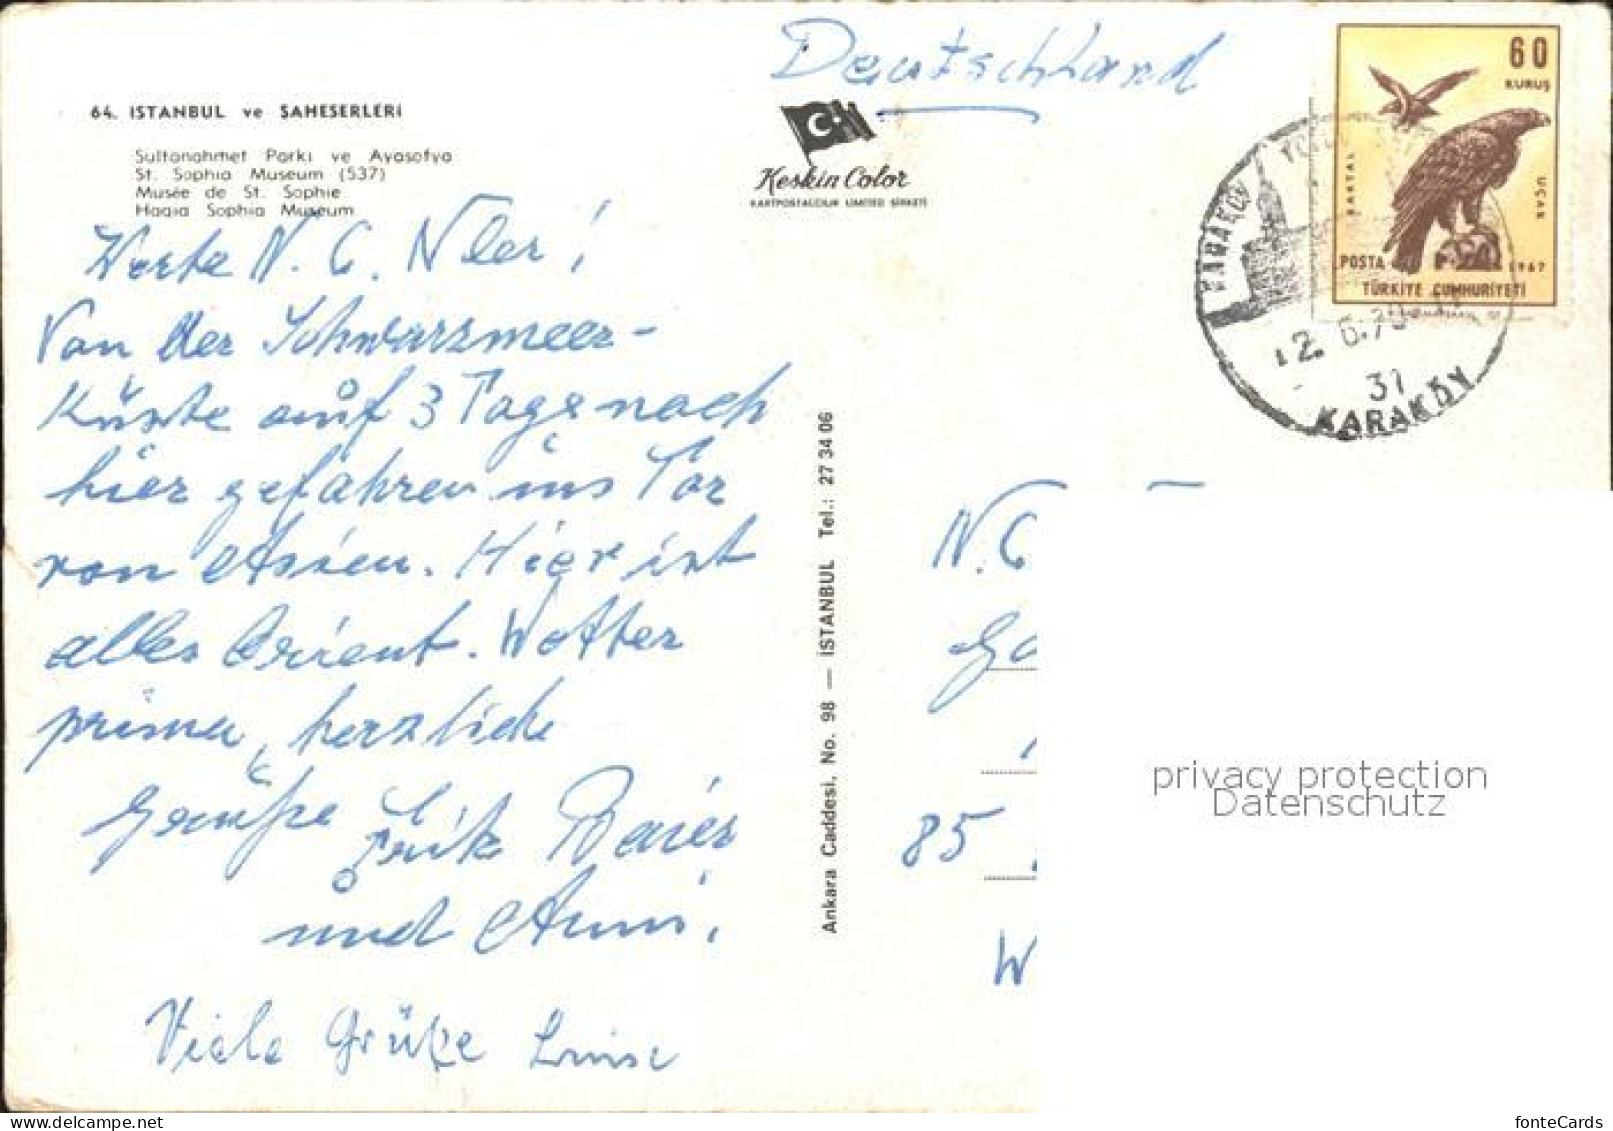 Deutschland
64. İSTANBUL ve ŞAHESERLERİ
Sultanahmet Parkı ve Ayasofya
St. Sophia Museum (537)
Musée de St. Sophie
Hagia Sophia Museum
Keskin Color
KARTPOSTALCILIK LIMITED ŞİRKETİ
60
KURUŞ
KARTAL
UÇAR
POSTA
1967
TÜRKİYE CUMHURİYETİ
KARAKÖY
12.6.70
31
KARAKÖY
Werte N. C. !
Von der Schwarzmeer-
Küste auf 3 Tage nach
hier gefahren ins Tor
von Asien. Hier ist
alles Orient. Wetter
prima, herzliche
Grüße Fritz Baier
und Anni.
Viele Grüße Luise
Ankara Caddesi, No. 98 — İSTANBUL Tel.: 27 34 06
N. C
Ga
85
W
privacy protection
Datenschutz
fonteCards